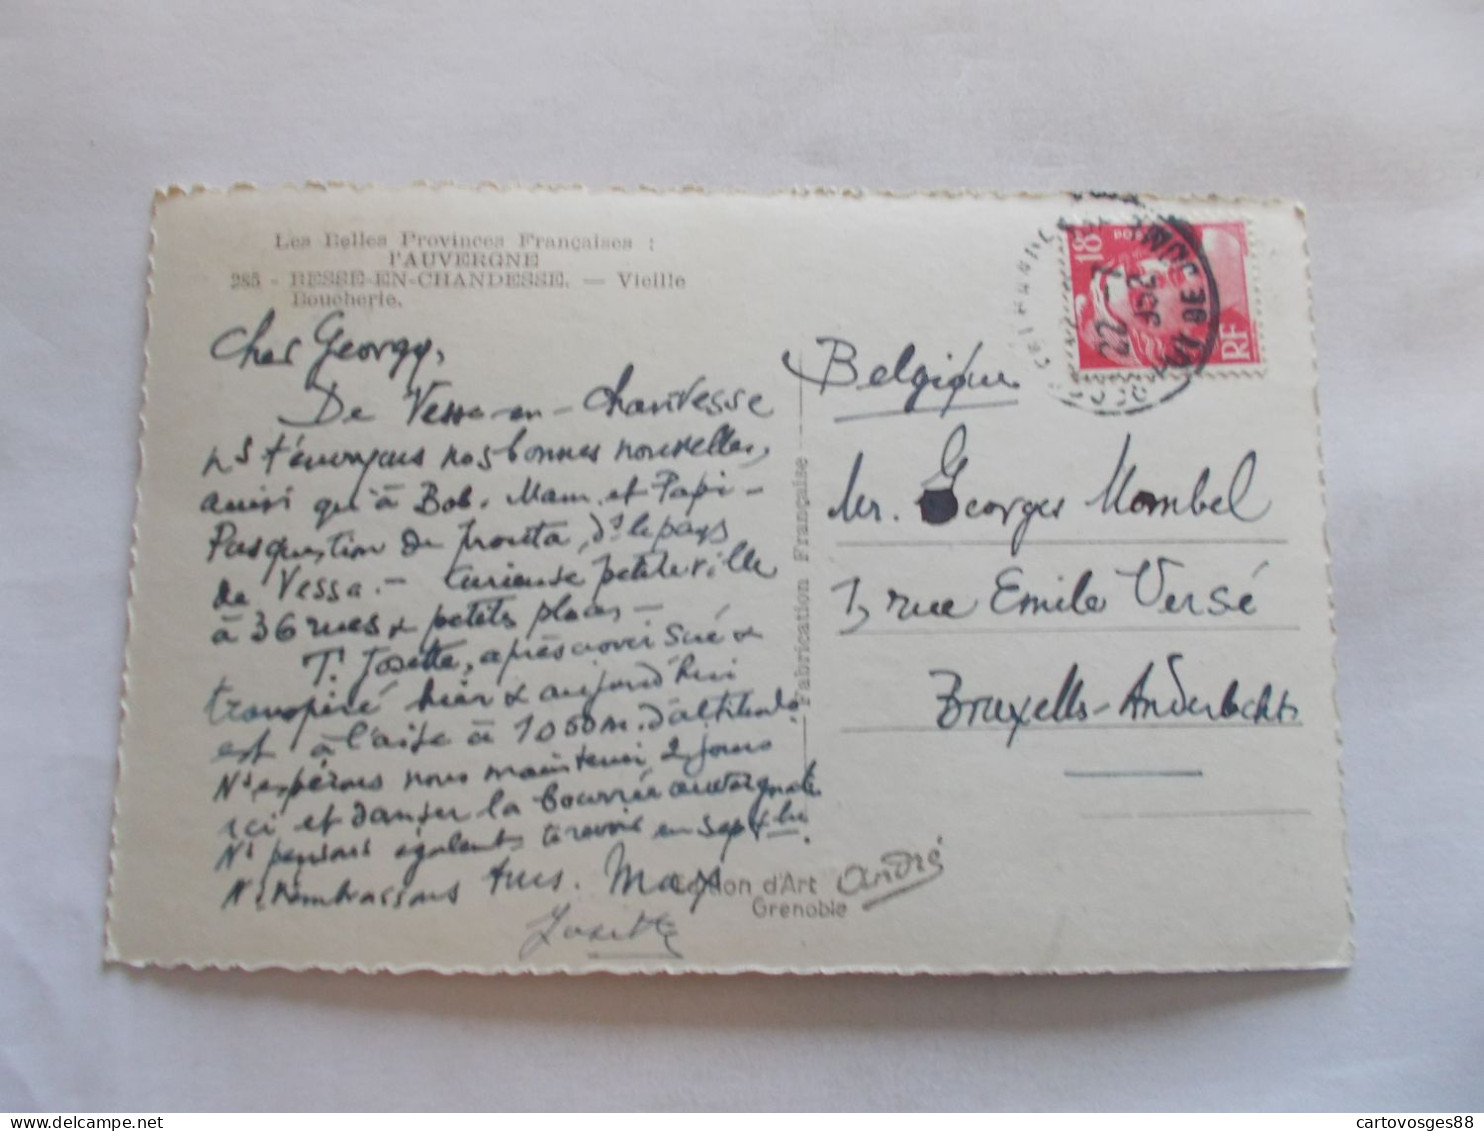 Les Belles Provinces Françaises :
l'AUVERGNE
285 - BESSE-EN-CHANDESSE. — Vieille
Boucherie.
Cher Georgy,
De Vesse-en-Chandesse
ns t'envoyons nos bonnes nouvelles,
ainsi qu'à Bob, Mam. et Papi -
Pas question de prouta, ds le pays
de Vessa. - Curieuse petite ville
à 36 rues & petits places -
T. Josette, après avoir sué &
transpiré hier & aujourd'hui
est à l'aise à 1050 m. d'altitude
Ns espérons nous maintenir 2 jours
ici et danser la bourrée auvergnate
Ns pensons également te revoir en septbre.
Ns t'embrassons tous. Max
Josette
André
Edition d'Art
Grenoble
Fabrication Française
18
POSTES
RF
22 - 7
PUY DE DOME
Belgique
Mr. Georges Mombel
1, rue Emile Versé
Bruxelles-Anderlecht
cartovosges88